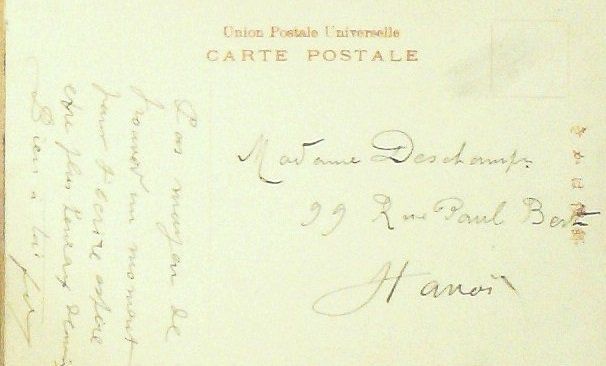 Union Postale Universelle
CARTE POSTALE
Madame Deschamps
99 Rue Paul Bert
Hanoï
Pas moyen de
trouver un moment
pour t'écrire espère
être plus heureux demain
Bien à toi